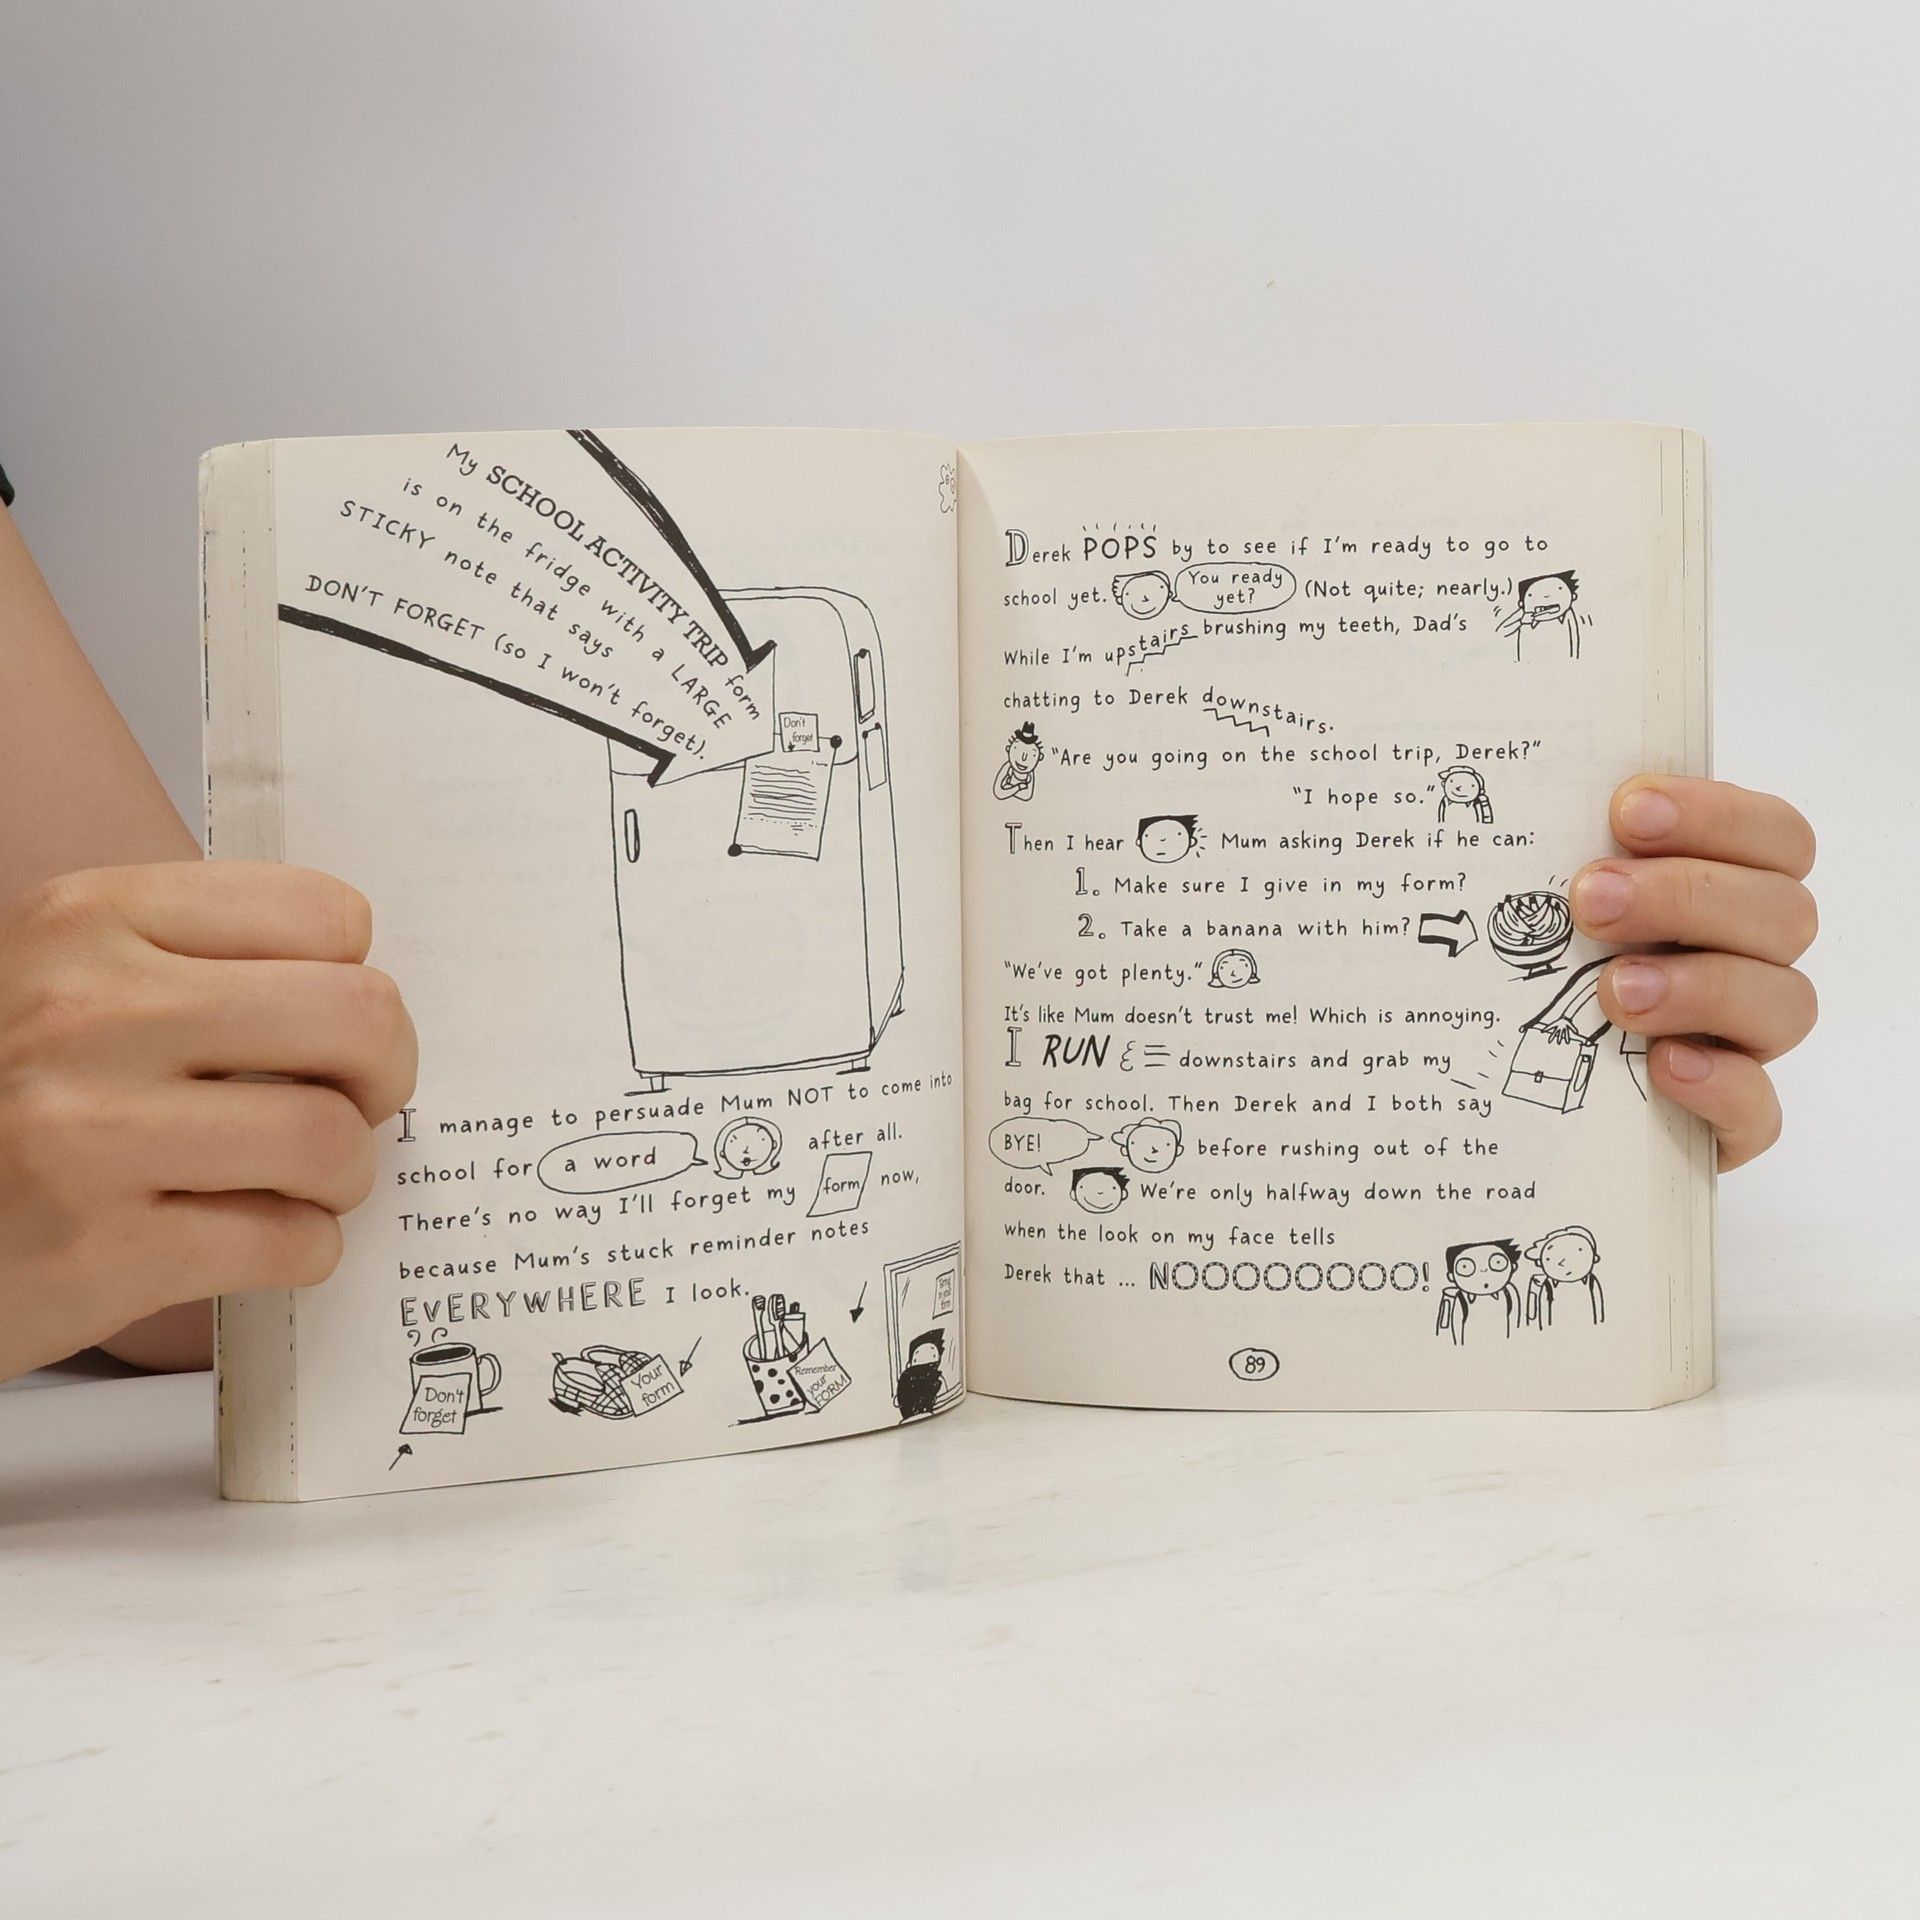 My SCHOOL ACTIVITY TRIP form
is on the fridge with a LARGE
STICKY note that says
DON'T FORGET (so I won't forget).
Don't
forget
I manage to persuade Mum NOT to come into
school for a word after all.
There's no way I'll forget my form now,
because Mum's stuck reminder notes
EVERYWHERE I look.
Don't
forget
Your
form
Remember
your
FORM
Derek POPS by to see if I'm ready to go to
school yet. You ready yet? (Not quite; nearly.)
While I'm upstairs brushing my teeth, Dad's
chatting to Derek downstairs.
"Are you going on the school trip, Derek?"
"I hope so."
Then I hear Mum asking Derek if he can:
1. Make sure I give in my form?
2. Take a banana with him?
"We've got plenty."
It's like Mum doesn't trust me! Which is annoying.
I RUN downstairs and grab my
bag for school. Then Derek and I both say
BYE! before rushing out of the
door. We're only halfway down the road
when the look on my face tells
Derek that ... NOOOOOOOO!
89